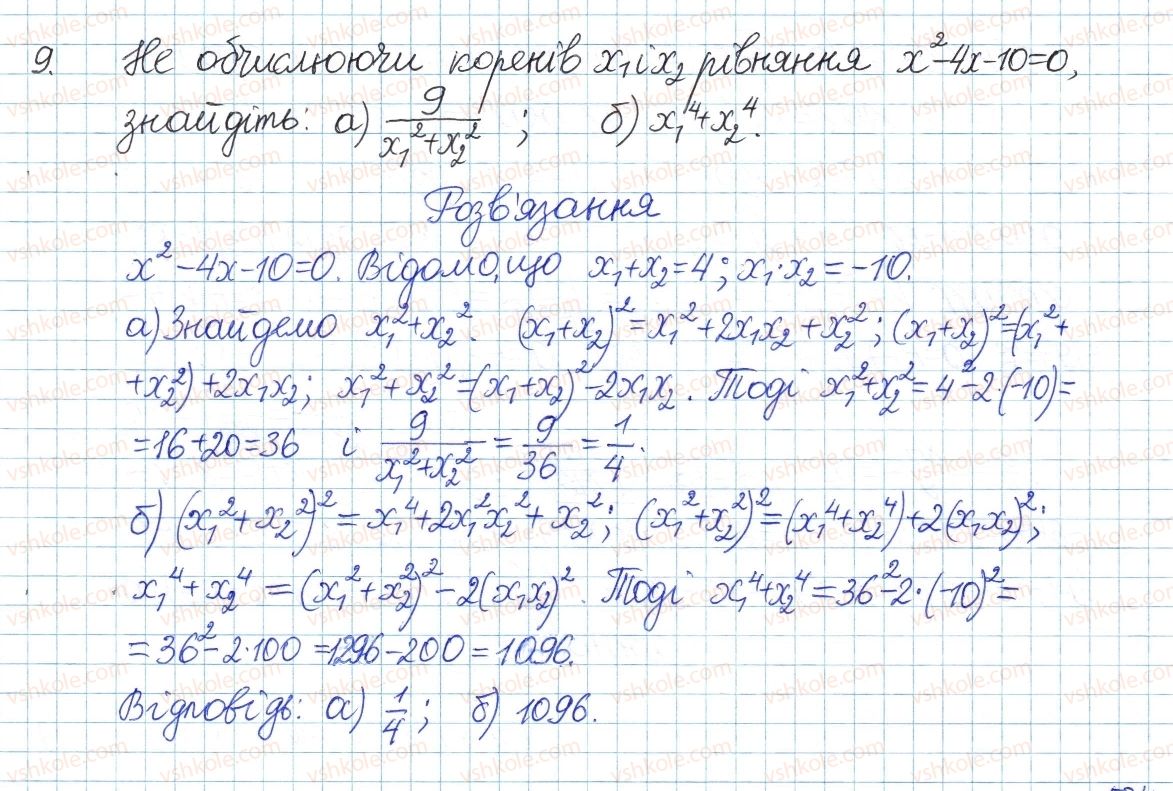 9. Не обчислюючи коренів x₁ і x₂ рівняння x²-4x-10=0,
знайдіть: а) 9/(x₁²+x₂²) ; б) x₁⁴+x₂⁴.
Розв'язання
x²-4x-10=0. Відомо, що x₁+x₂=4; x₁·x₂=-10.
а) Знайдемо x₁²+x₂². (x₁+x₂)²=x₁²+2x₁x₂+x₂²; (x₁+x₂)²=(x₁²+
+x₂²)+2x₁x₂; x₁²+x₂²=(x₁+x₂)²-2x₁x₂. Тоді x₁²+x₂²=4²-2·(-10)=
=16+20=36 і 9/(x₁²+x₂²) = 9/36 = 1/4.
б) (x₁²+x₂²)²=x₁⁴+2x₁²x₂²+x₂²; (x₁²+x₂²)²=(x₁⁴+x₂⁴)+2(x₁x₂)²;
x₁⁴+x₂⁴=(x₁²+x₂²)²-2(x₁x₂)². Тоді x₁⁴+x₂⁴=36²-2·(-10)²=
=36²-2·100=1296-200=1096.
Відповідь: а) 1/4; б) 1096.